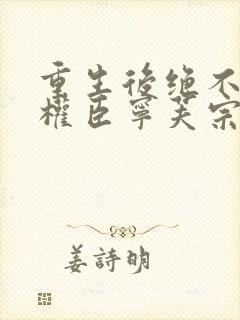 重生後绝不
權臣寧芙宗
姜詩明